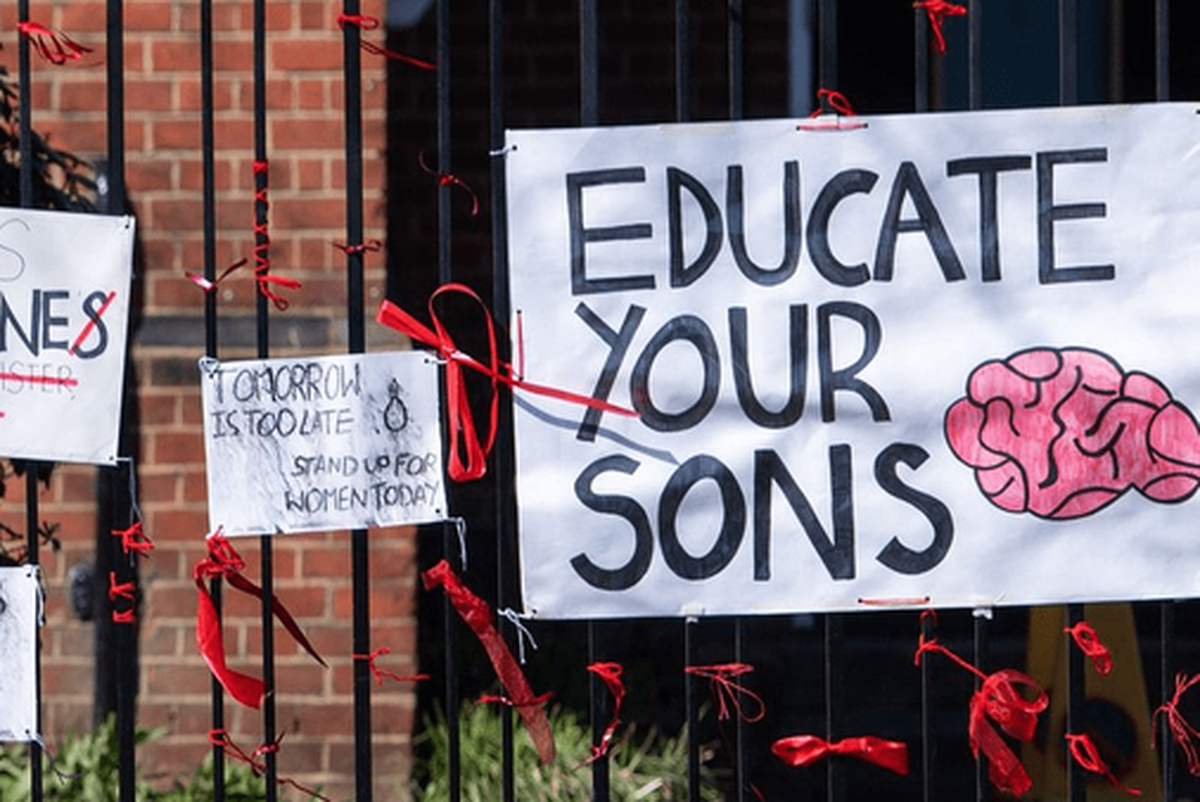 S
NES
ISTER
TOMORROW
IS TOO LATE
STAND UP FOR
WOMEN TODAY
EDUCATE
YOUR
SONS